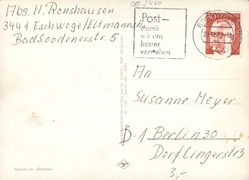 Abs. H. Ronshausen
3441 Eschwege/Eltmannsh.
BadSoodenerstr. 5
Post-
damit
wir uns
besser
verstehen
An
Susanne Meyer
D 1 Berlin 30
Derflingerstr
3,-